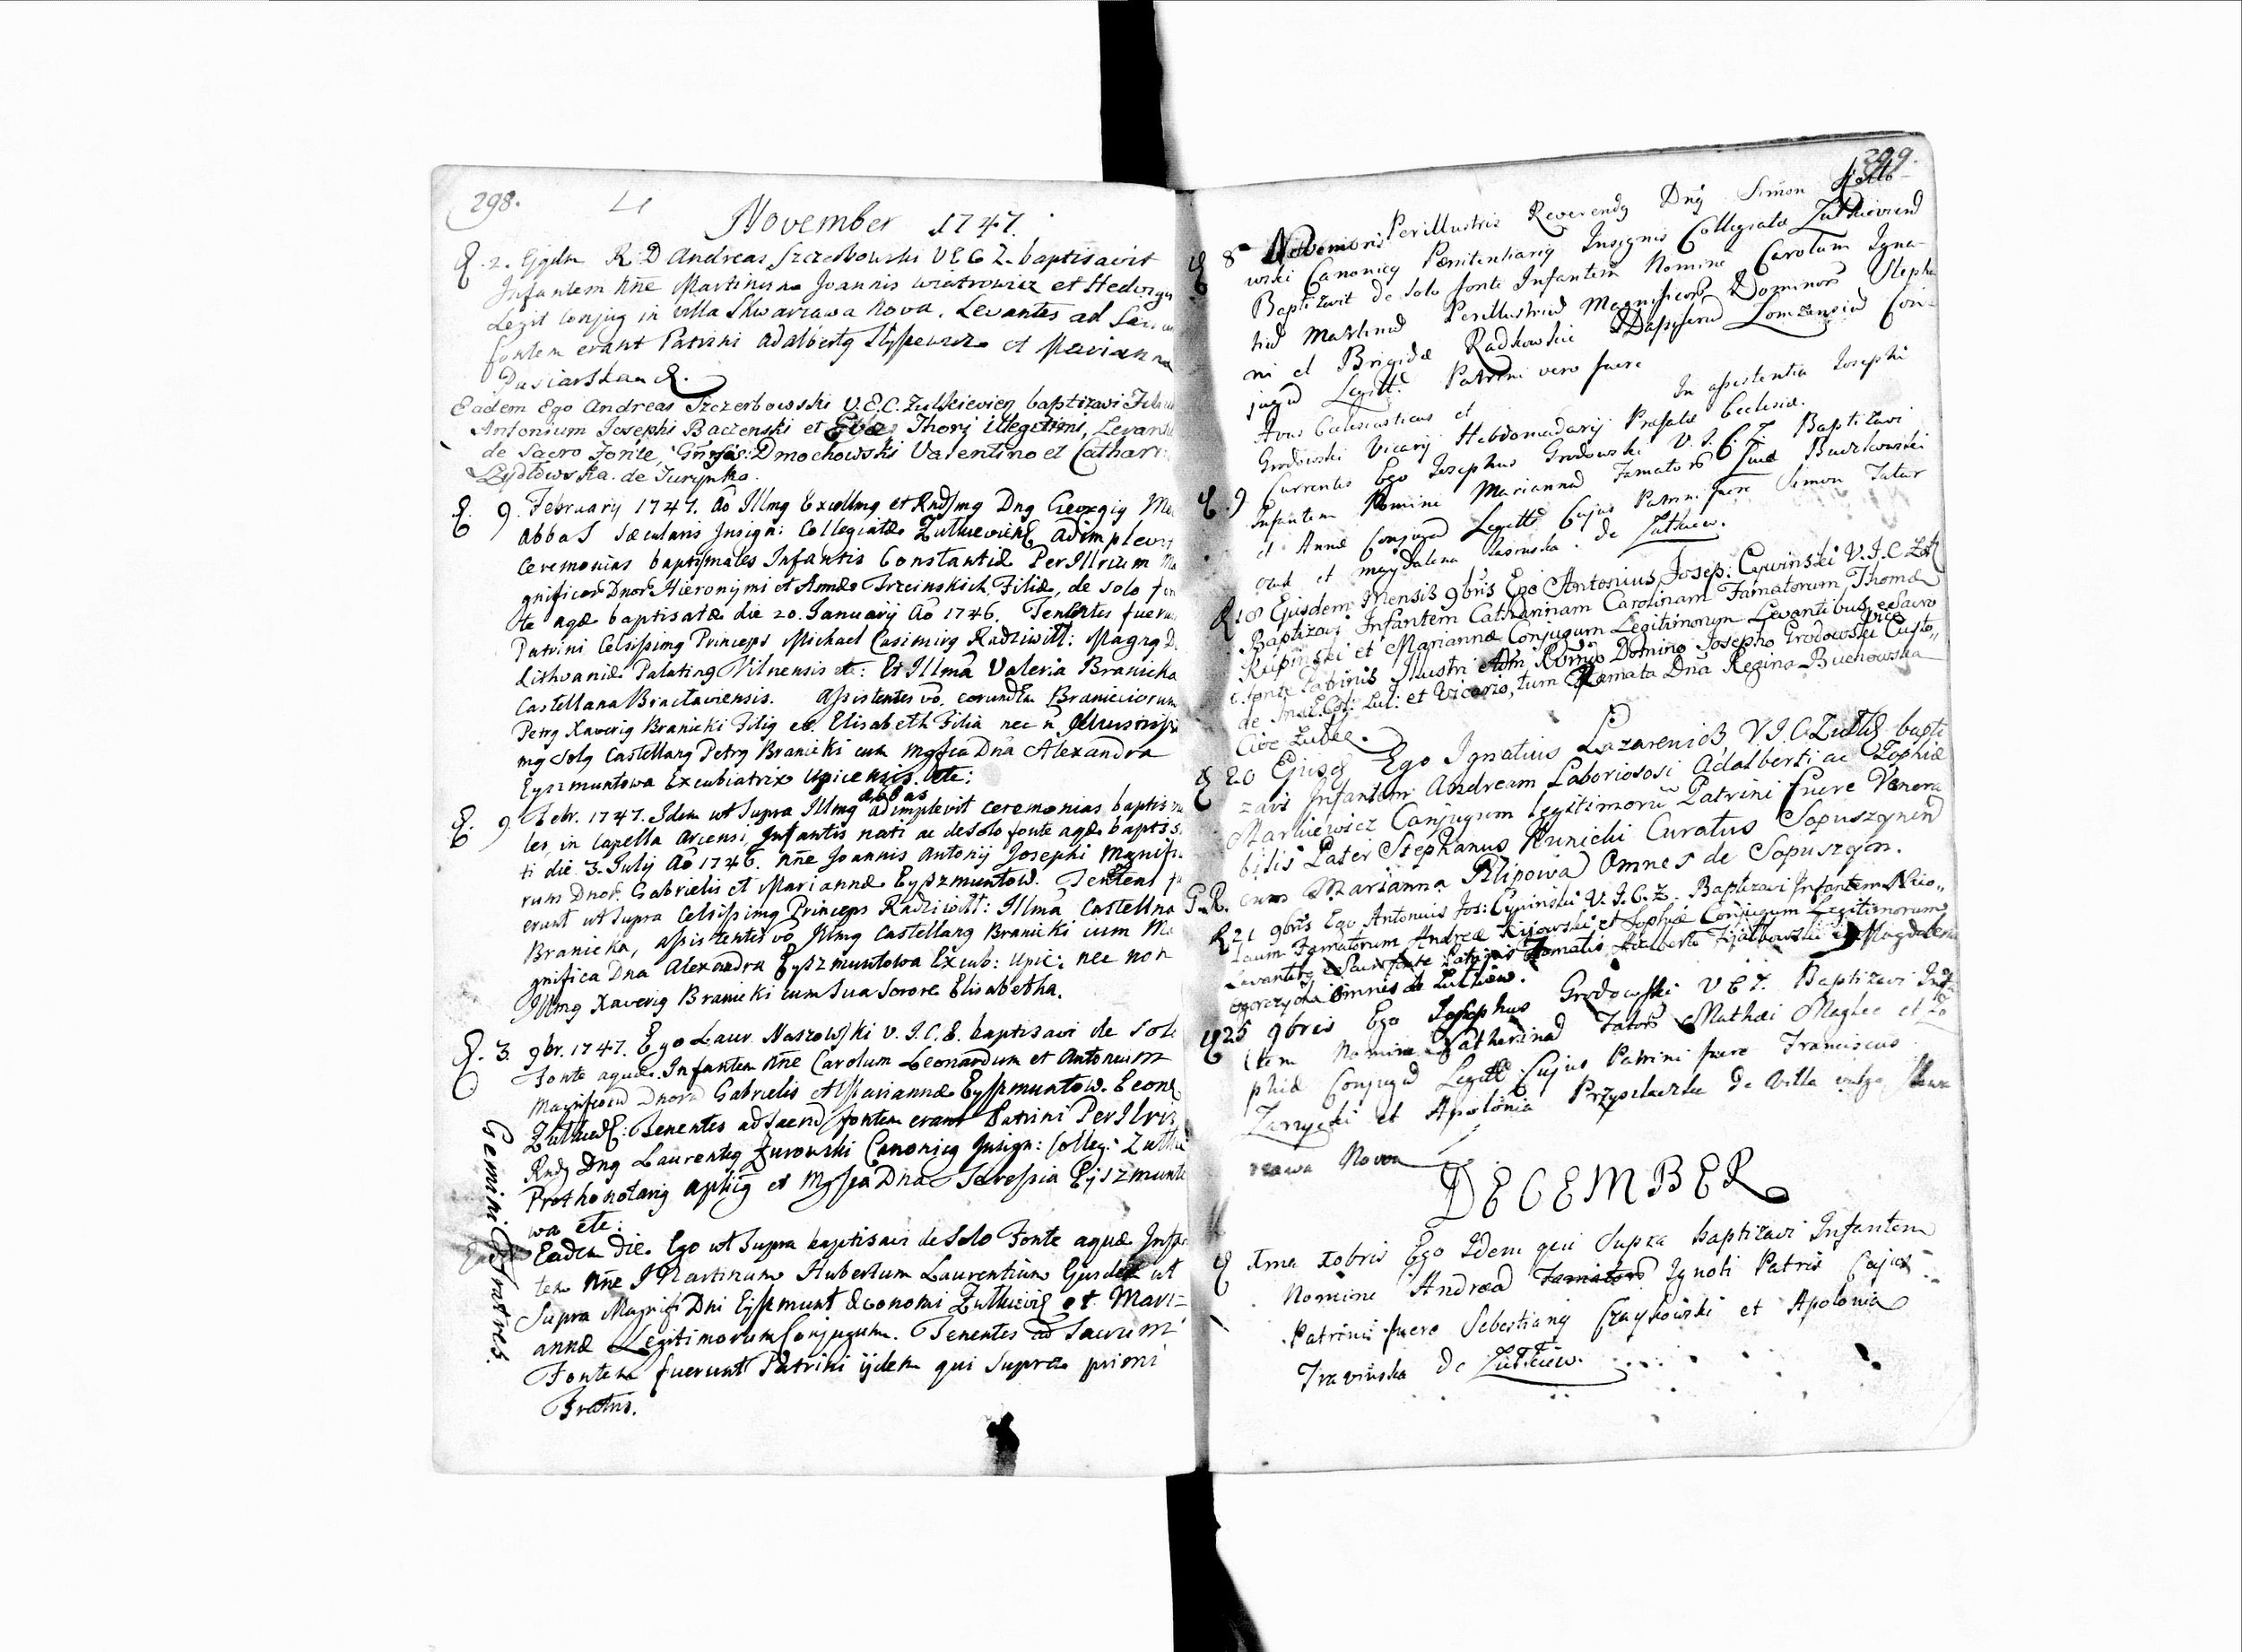 298.
November 1747.
2. Ejgdm R. D Andreas Szczerbowski V E C Z. baptisavit
Infantem nne Martinum Joannis Wiatrowicz et Hedvigis
Legit Conjug in villa Skwarzawa Nova. Levantes ad Sacrum
fontem erant Patrini Adalbertg et Marianna
Eadem Ego Andreas Szczerbowski V. E. C. Zulkievien baptizavi
Antonium Josephi Baczenski et Evæ Thorz illegitimi, Levan
de Sacro Fonte, Gnrsis: Dmochowski Valentino et Cathar
Szydłowska. de Turynka.
9. February 1747. Ao Illmg Excellmg et Rndsmg Dng Georgig
abbas Sæcularis Insign: Collegiatæ Zulkievien adimplevit
Ceremonias baptismales Infantis Constantiæ PerIllrium Ma
gnificor Dnor Hieronymi et Annæ Trzcinskich Filiæ, de solo fon
te aqæ baptisatæ die 20. January Ao 1746. Tenentes fuerunt
Patrini Celsissimg Princeps Michael Casimirg Radziwiłł: Magng D.
Lithvaniæ Palating Vilnensis etc: Et Illma Valeria Branicka
Castellana Braclaviensis. Assistentes vo. eorundem Braniciorum
Petrg Xaverig Branicki Filig et. Elisabeth Filia nec n Illustrissi
mg Solg Castellang Petrg Branicki cum Mgfica Dna Alexandra
Eyszmuntowa Excubiatrix Upicensis. etc:
abbas
9. Febr. 1747. Idem ut Supra Illmg adimplevit ceremonias baptisma
les, in Capella Arcensi Infantis nati ac de solo fonte aqæ baptisa
ti die 3. July Ao 1746. nne Joannis Antonij Josephi Magnifi
rum Dnor. Gabrielis et Mariannæ Eyszmuntow. Tentens fu
erunt ut Supra Celsissimg Princeps Radziwiłł: Illma Castellna
Branicka, assistentes vo Illmg Castellang Branicki cum Ma
gnifica Dna Alexandra Eyszmuntowa Excub: Upic: nec non
Illmg Xaverig Branicki cum Sua Sorore Elisabetha.
3. 9br. 1747. Ego Laur. Naszowski V. I. C. E. baptisavi de Solo
Fonte aquæ Infantem nne Carolum Leonardum et Antonium
Magnificor Dnor Gabrielis et Mariannæ Eyszmuntow. Econo
Zulkie: Tenentes ad Sacru fontem erant Patrini PerIllris
Rndg Dng Laurentig Zurowski Canonicg Insign: Colleg: Zulki
Prothonotarig aplicg et Mgfica Dna Teressia Eyszmunto
wa etc:
Gemini Fratres.
Eadem die. Ego ut Supra baptisavi de Solo Fonte aquæ Infan
tem nne Martinum Hubertum Laurentium Ejusdem ut
Supra Magnifi Dni Eyszmunt Œconomi Zulkievi et Mari=
annæ Legitimorum Conjugum. Tenentes ad Sacrum
Fontem fuerunt Patrini ijdem qui Supra primi
Fratris.
299.
8 Novembris Perillustris Reverendg Dng Simon
wski Canonicg Pænitentiarig Insignis Collegiatæ Zulkieviens
Baptizavit de Solo fonte Infantem Nomine Carolum Igna-
tiu Martinu Perillustriu Magnificor Dominor Stepha
ni et Brigidæ Radkowskie Dapiferu Lomzensiu Con-
jugu Legitt. Patrini vero fuere
Avus Ecclesiasticus et In assistentia Josephi
Grodowski Vicarij Hebdomadarij Præfatæ Ecclesiæ.
9. Currentis Ego Josephus Grodowski V. I. C. Z. Baptizavi
Infantem Nomine Mariannā Famator Lucæ Budzkowski
et Annæ Conjugu Legitt. Cujus Patrini fuere Simon Tatar
et Magdalena de Zulkiew.
18 Ejusdem Mensis 9bris Ego Antonius Josep: Cywinski V. I. C Zul
Baptizavi Infantem Catharinam Carolinam Famatorum Thomæ
Rupinski et Mariannæ Conjugum Legitimorum Levantibus e Sacro
Fonte Patrinis Illustri Adm Rndo Domino Josepho Grodowski Vice Custo,,
de Ins. E. Col: Zul: et Vicario, tum Famata Dna Regina Buchowska
Cive Zulk.
20 Ejusd Ego Ignatius Lazarewicz V I. C Zulk bapti
zavi Infantem Andream Laboriososi Adalberti ac Zophiæ
Markiewicz Conjugum legitimorū Patrini fuere Venera
bilis Pater Stephanus Kunicki Curatus Sopuszynen
G. R. cum Marianna Filipowa Omnes de Sopuszyn.
21 9bris Ego Antonius Jos: Cywinski V. I. C. Z. Baptizavi Infantem Nico,,
laum Famatorum Andreæ Kijowski et Sophiæ Conjugum Legitimorum
Levantibg e Sacro fonte Patrinis Famatis Adalberto Fijałkowski et Magdalena
omnes de Zulkiew.
25 9bris Ego Josephus Grodowski V E Z. Baptizavi Infan
tem Nomine Catharinā Fator Mathæi Maglec et Zo
phiæ Conjugu Legitt. Cujus Patrini fuere Franciscus
Zarzycki et Apolonia Przyslacka de Villa vulgo Skwa
rzawa Nova
DECEMBER
1ma Xbris Ego Idem qui Supra baptizavi Infantem
Nomine Andreā Ignoti Patris Cujus
Patrini fuere Sebestiang Czaykowski et Apolonia
Trawinska de Zulkiew.